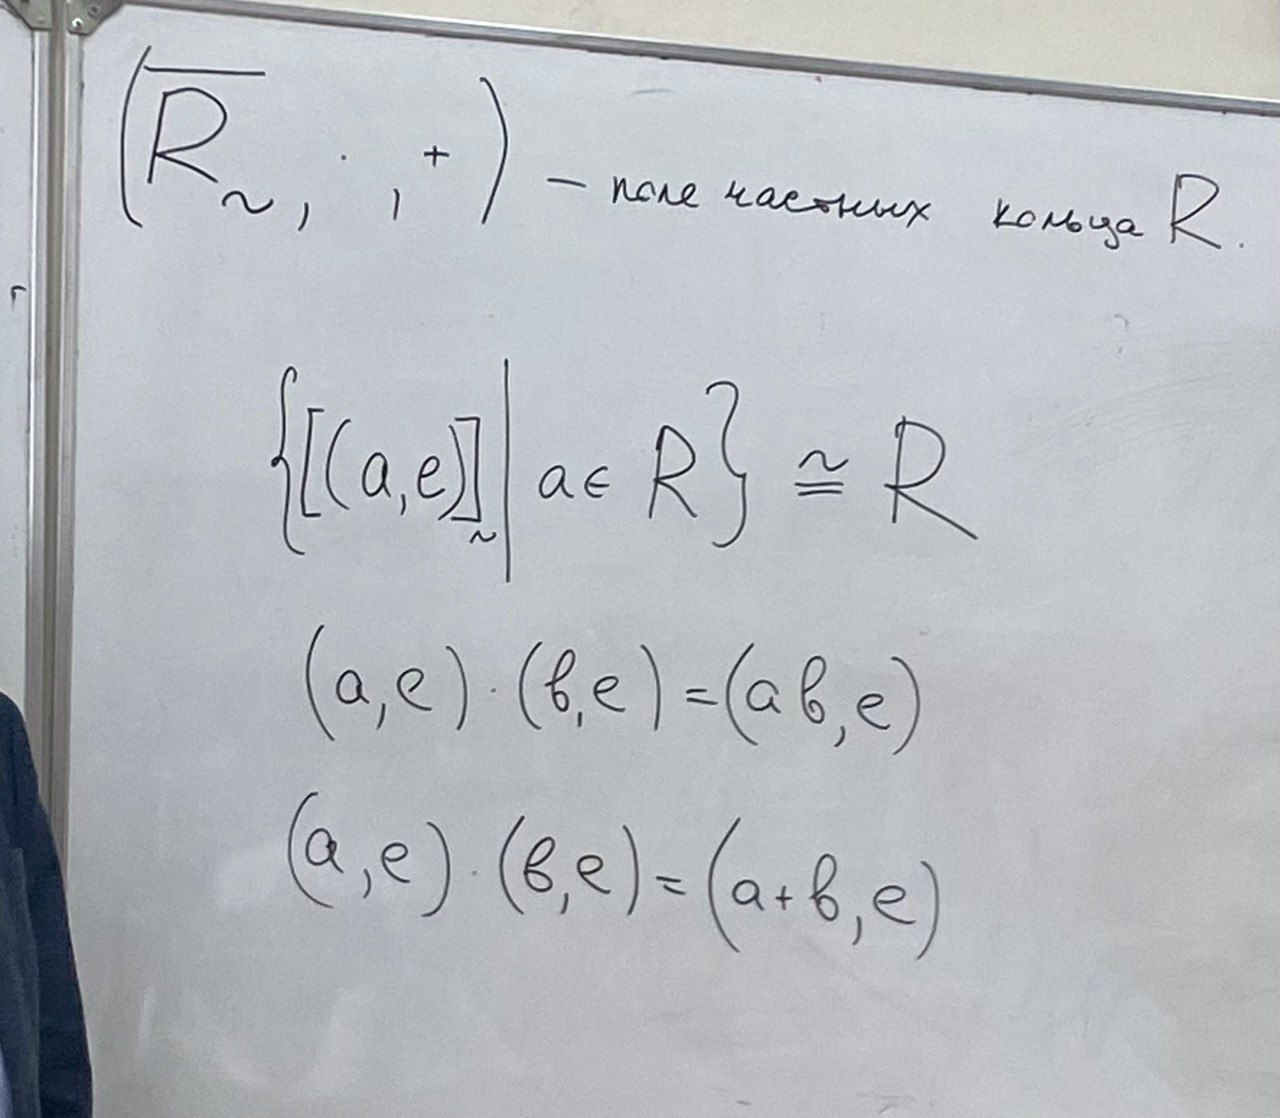 (R̅~, ·, +) – поле частных кольца R.
{[(a,e)]~ | a ∈ R} ≅ R
(a,e)·(b,e)=(ab,e)
(a,e)·(b,e)=(a+b,e)